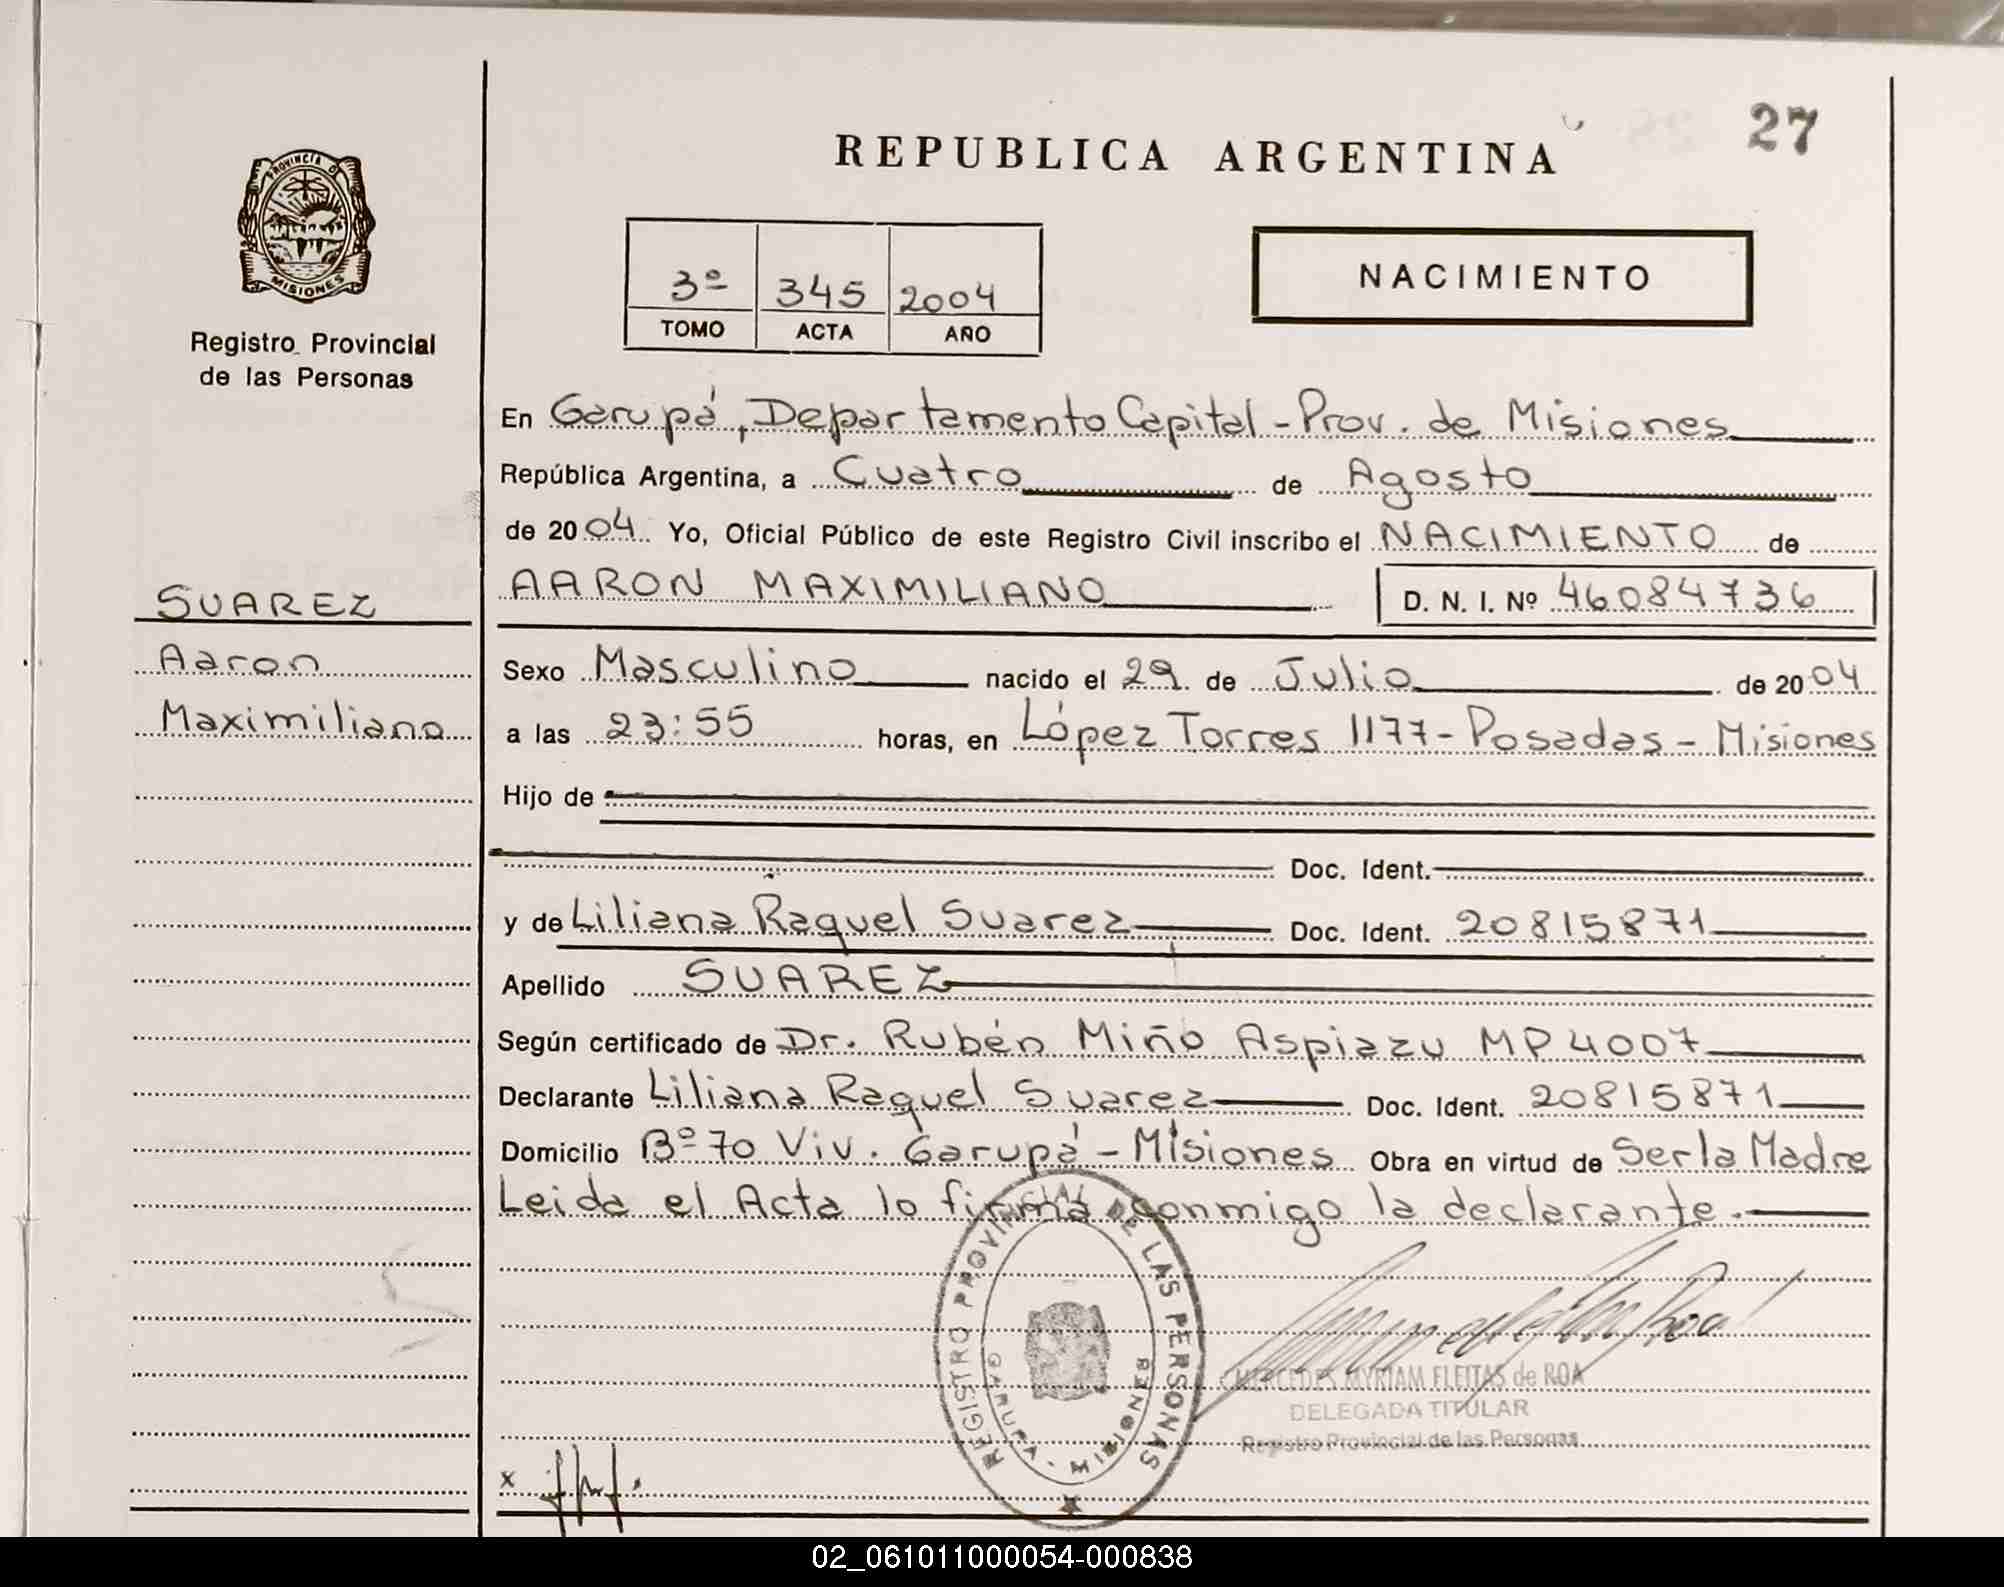 27
REPUBLICA ARGENTINA
PROVINCIA D
MISIONES
Registro Provincial
de las Personas
3º 345 2004
TOMO ACTA AÑO
NACIMIENTO
En Garupá, Departamento Capital - Prov. de Misiones
República Argentina, a Cuatro de Agosto
de 2004 Yo, Oficial Público de este Registro Civil inscribo el NACIMIENTO de
AARON MAXIMILIANO D. N. I. Nº 46084736
SUAREZ
Aaron
Maximiliano
Sexo Masculino nacido el 29 de Julio de 2004
a las 23:55 horas, en López Torres 1177 - Posadas - Misiones
Hijo de
Doc. Ident.
y de Liliana Raquel Suarez Doc. Ident. 20815871
Apellido SUAREZ
Según certificado de Dr. Rubén Miño Aspiazu MP 4007
Declarante Liliana Raquel Suarez Doc. Ident. 20815871
Domicilio Bº 70 Viv. Garupá - Misiones Obra en virtud de Ser la Madre
Leida el Acta lo firma conmigo la declarante.
REGISTRO PROVINCIAL DE LAS PERSONAS
GARUPA - MISIONES
MERCEDES MYRIAM FLEITAS de ROA
DELEGADA TITULAR
Registro Provincial de las Personas
x
02_061011000054-000838